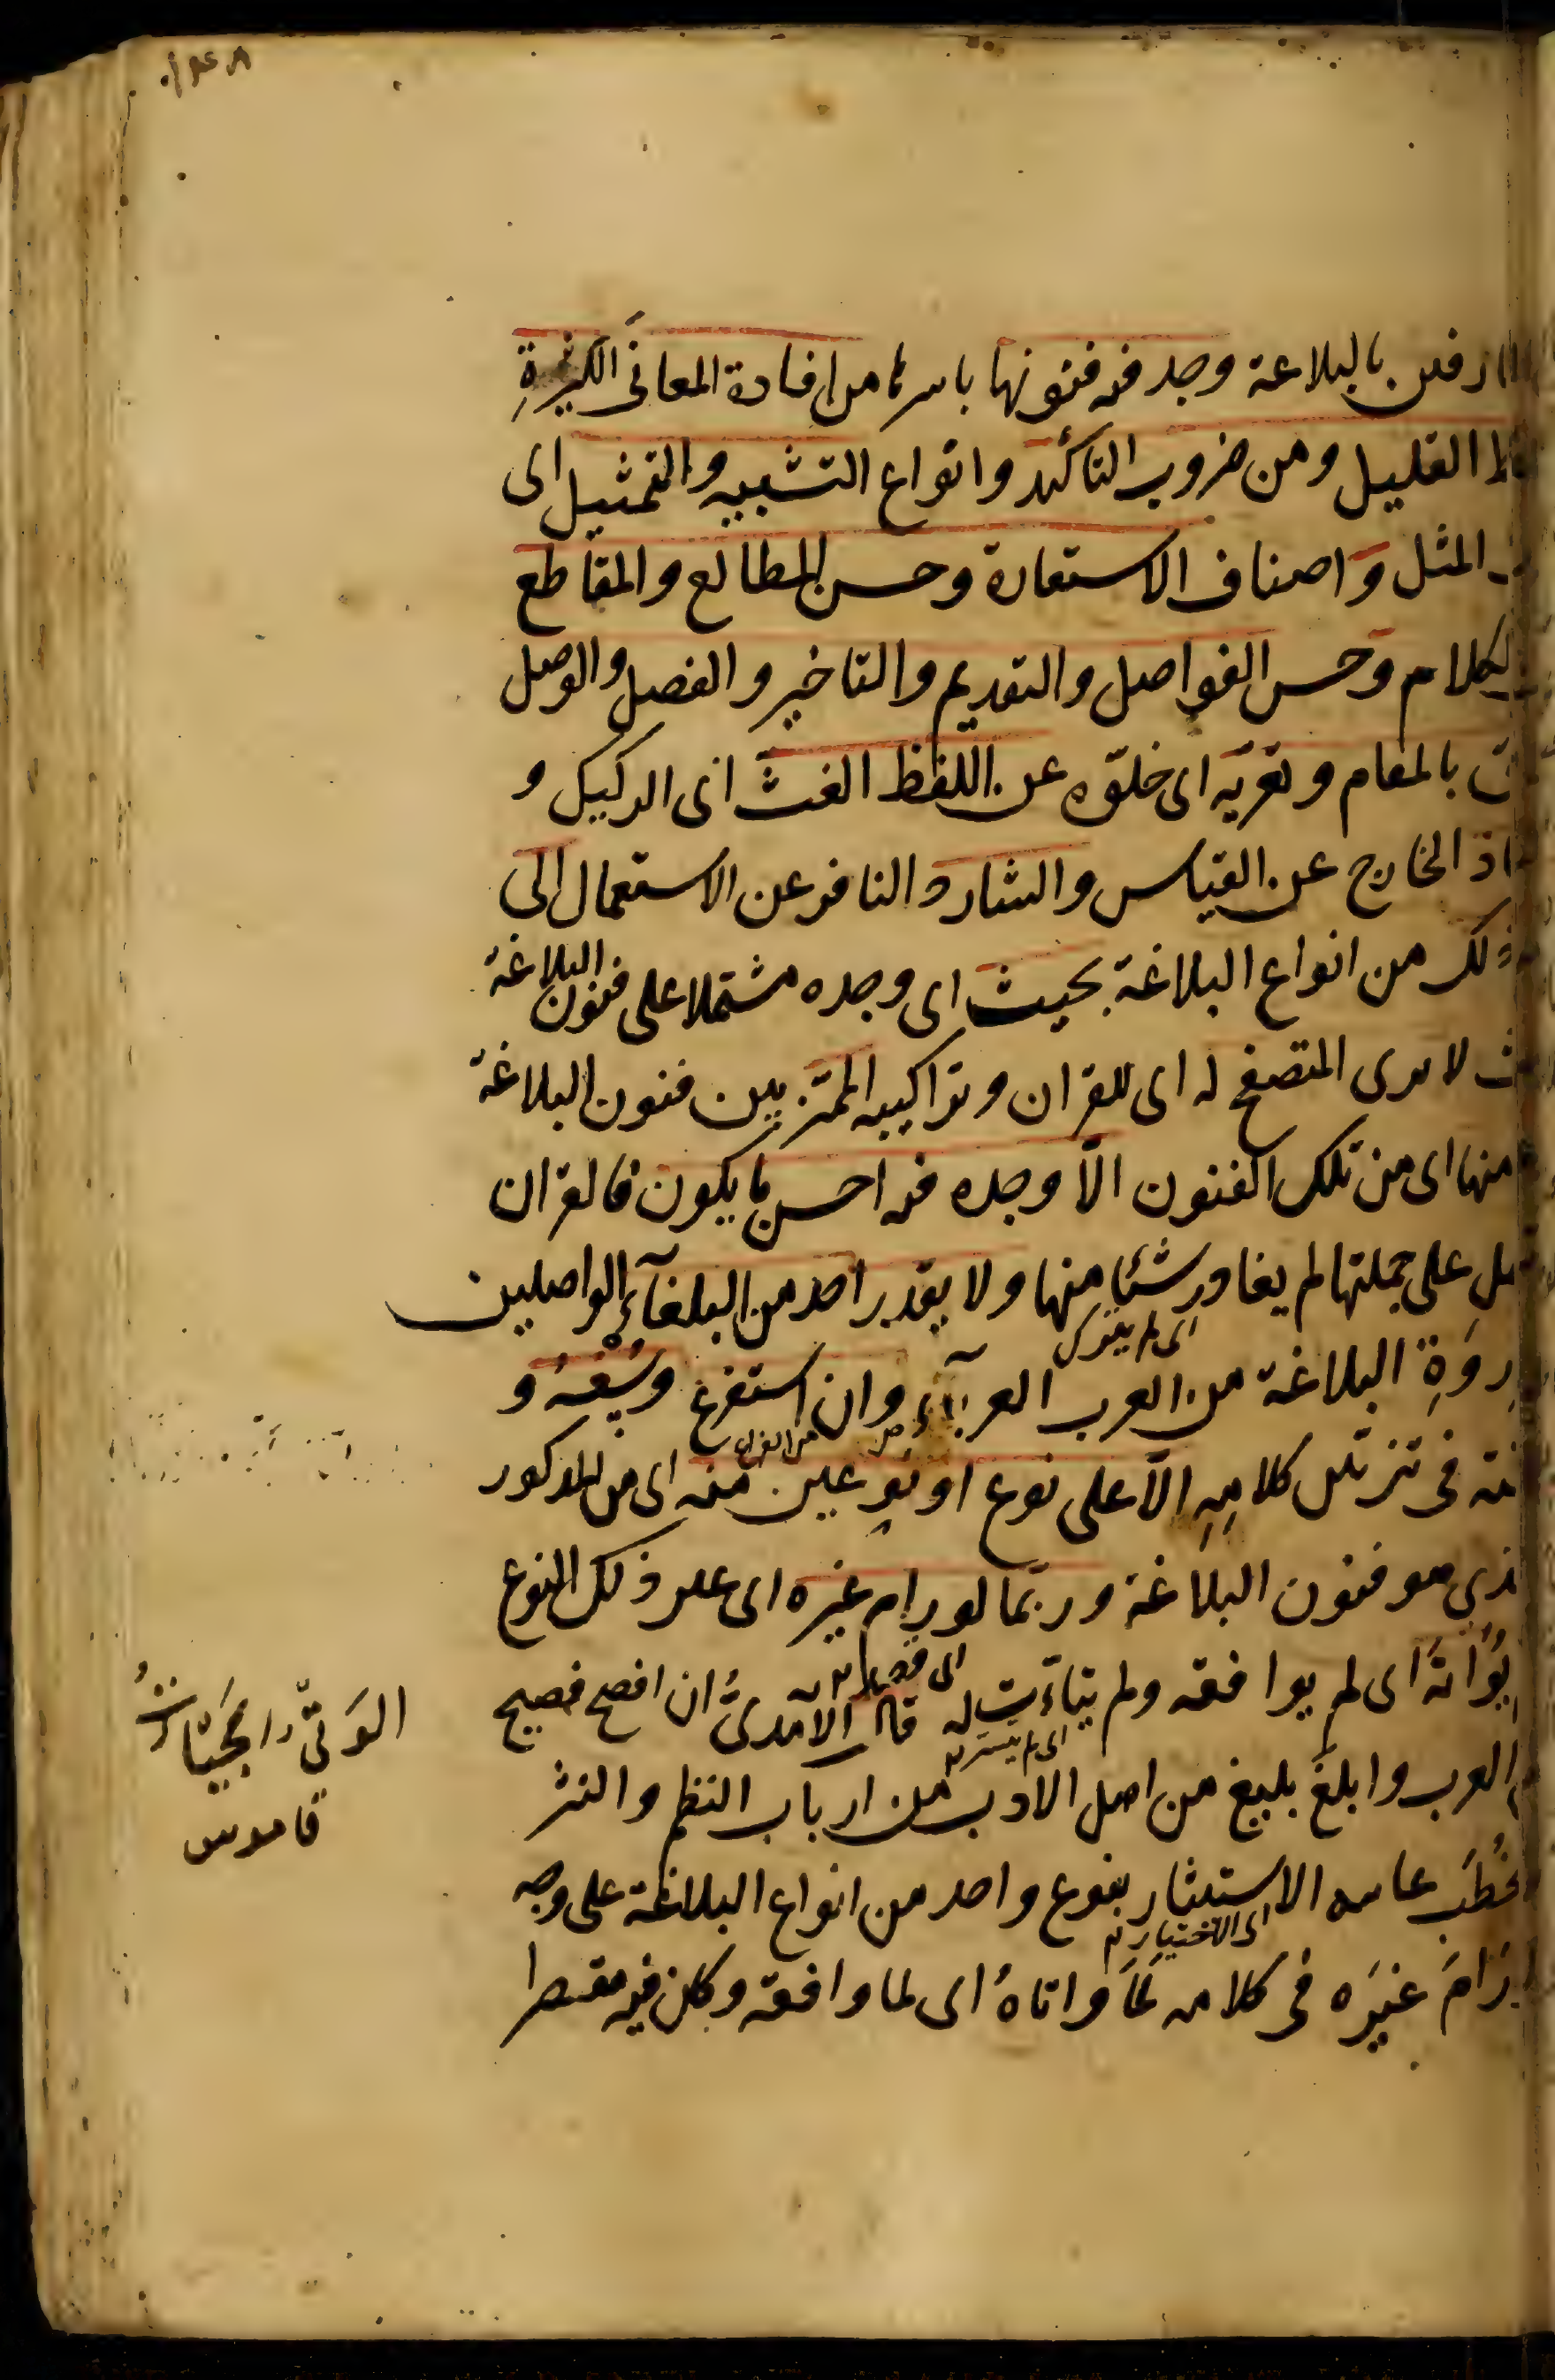 بالبلاغة وجد فيه فنونها باسرها من افادة المعانى الكثيرة
القليل ومن ضروب التاكيد وانواع التشبيه والتمثيل اى
المثل واصناف الاستعارة وحسن المطالع والمقاطع
الكلام وحسن الفواصل والتقديم والتاخير والفصل والوصل
بالمقام وتعريّه اى خلوّه عن اللفظ الغث اى الركيك و
الخارج عن القياس والشارد النافر عن الاستعمال الى
ذلك من انواع البلاغة بحيث اى وجده مشتملا على فنون البلاغة
لا يرى المتصفح له اى للقران وتراكيبه المميّز بين فنون البلاغة
منها اى من تلك الفنون الّا وجده فيه احسن ما يكون فالقران
على جملتها لم يغادر شئيا منها ولا يقدر احد من البلغآء الواصلين
اى لم يترك
ذروَةِ البلاغة من العرب العربآء وان استفرغ وسْعَهُ و
فى كلامِهِ الّا على نوع او نوعين منه اى من المذكور
من انواع
الذى هو فنون البلاغة وربّما لو رام غيره اى غير ذلك النوع
يُواته اى لم يوافقه ولم يتأت له قال الآمدىُّ ان افصح فصيح
اى لم يتيسر له
العرب وابلغ بليغ من اهل الادب من ارباب النظم والنثر
الخُطَب غايته الاستيثار بنوع واحد من انواع البلاغة على وجه
اى الاختيار
رَامَ غيَره فى كلامه لَمَا واتاهُ اى لما وافقه وكان فيه مقصرا
الوَنىّ
قاموس